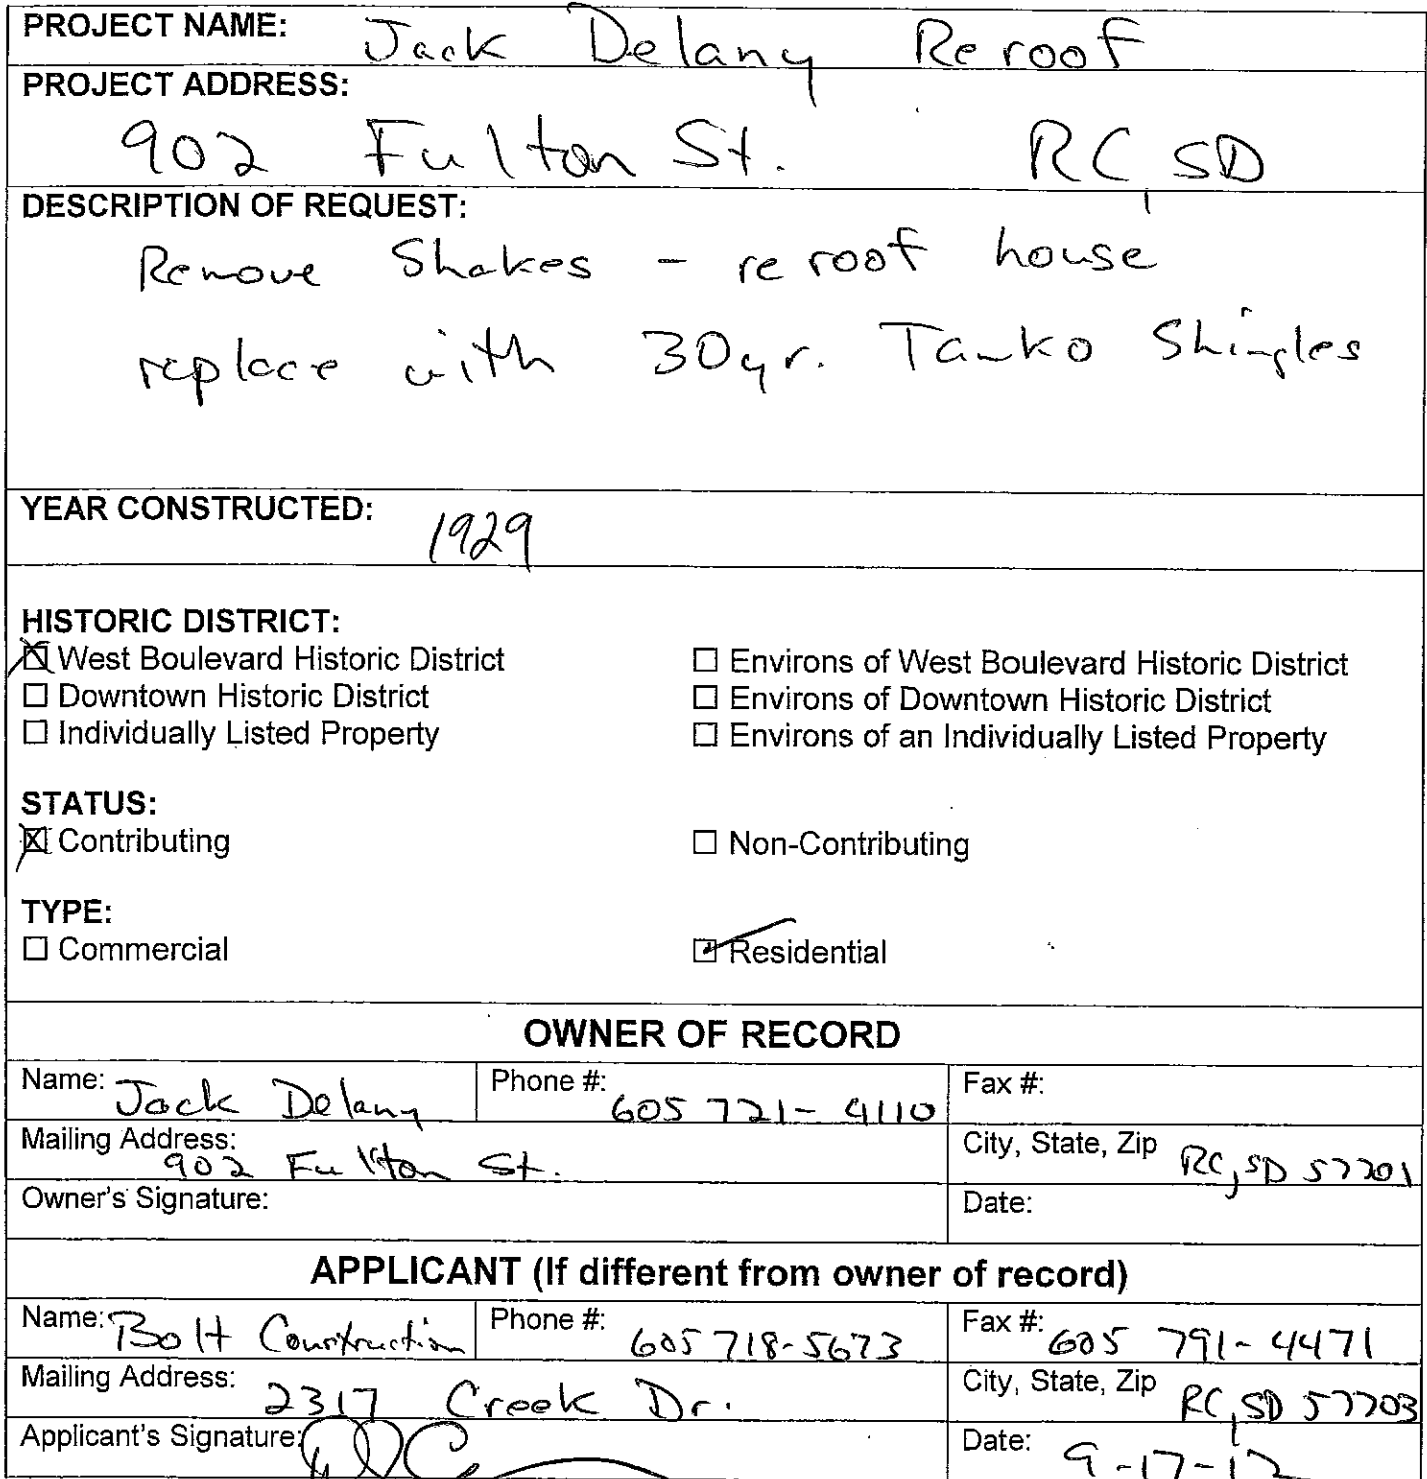 PROJECT NAME: Jack Delany Reroof
PROJECT ADDRESS:
902 Fulton St. RC, SD
DESCRIPTION OF REQUEST:
Remove Shakes - reroof house
replace with 30yr. Tamko Shingles
YEAR CONSTRUCTED: 1929
HISTORIC DISTRICT:
☒ West Boulevard Historic District ☐ Environs of West Boulevard Historic District
☐ Downtown Historic District ☐ Environs of Downtown Historic District
☐ Individually Listed Property ☐ Environs of an Individually Listed Property
STATUS:
☒ Contributing ☐ Non-Contributing
TYPE:
☐ Commercial ☑ Residential
OWNER OF RECORD
Name: Jack Delany Phone #: 605 721-4110 Fax #:
Mailing Address: 902 Fulton St. City, State, Zip RC, SD 57701
Owner's Signature: Date:
APPLICANT (If different from owner of record)
Name: Bolt Construction Phone #: 605 718-5673 Fax #: 605 791-4471
Mailing Address: 2317 Creek Dr. City, State, Zip RC, SD 57703
Applicant's Signature: Date: 9-17-12